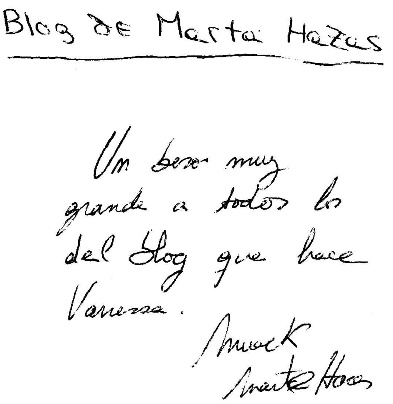 Blog de Marta Hazas
Un beso muy
grande a todos los
del blog que hace
Vanessa.
Muack
Marta Hazas